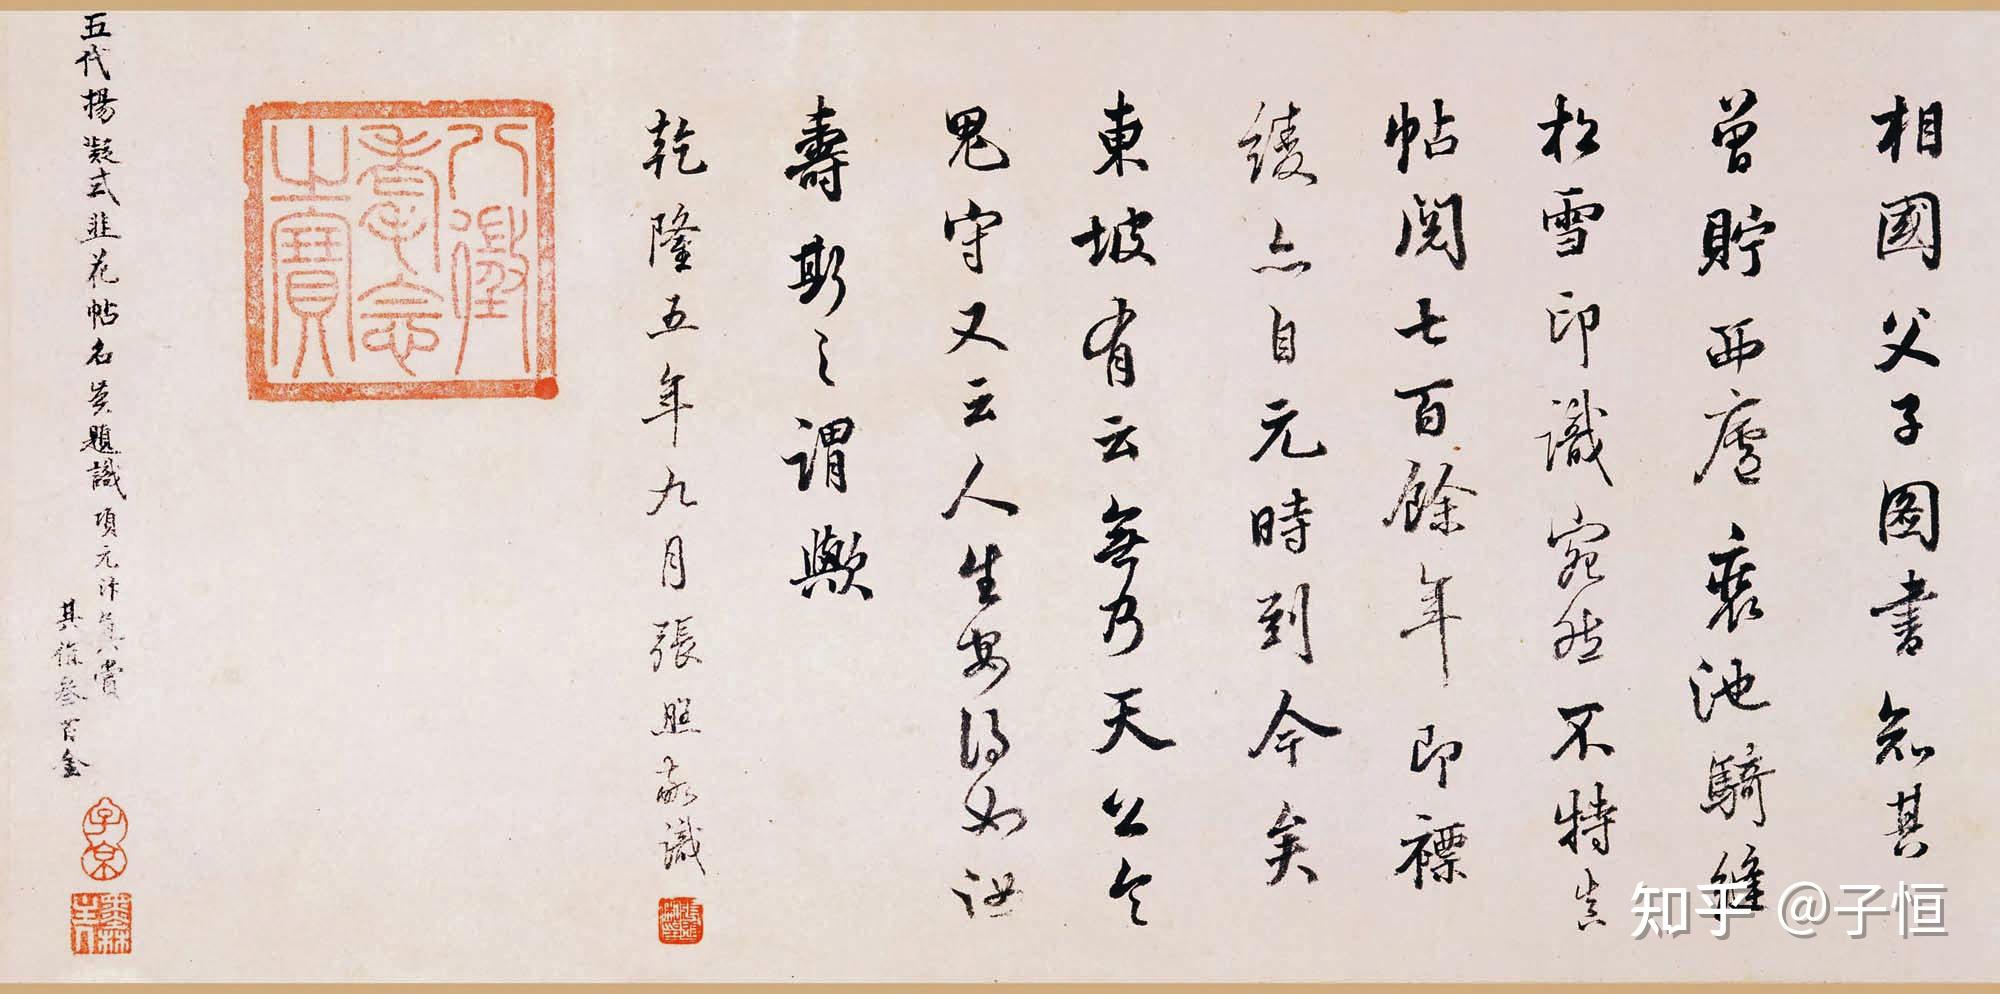 相國父子圖書知其
曾貯西廬裹池騎縫
松雪印識宛然不特真
帖閱七百餘年即褾
綾亦自元時到今矣
東坡有云無乃天公令
鬼守又云人生安得如汝
壽斯之謂歟
乾隆五年九月張照敬識
八徵耄念之寶
五代楊凝式韭花帖名賢題識項元汴真賞
其值叁百金
子京
墨林
知乎 @子恒